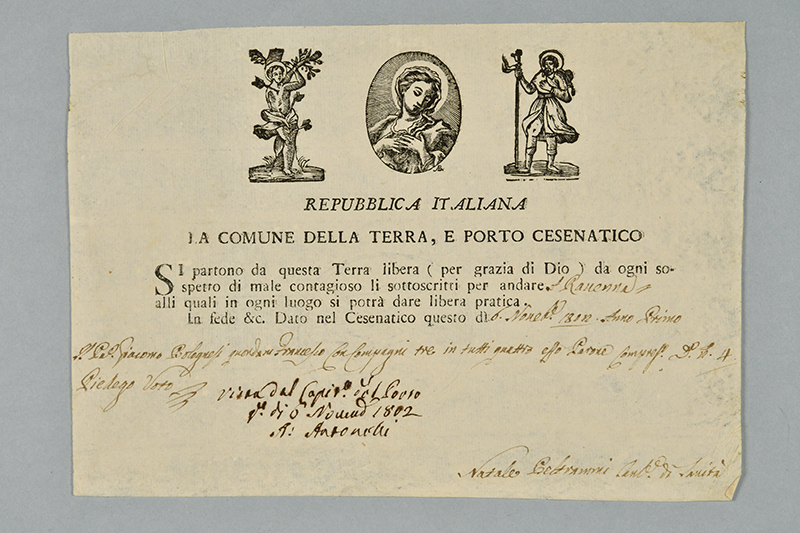 REPUBBLICA ITALIANA
LA COMUNE DELLA TERRA, E PORTO CESENATICO
SI partono da questa Terra libera ( per grazia di Dio ) da ogni so-
spetto di male contagioso li sottoscritti per andare A Ravenna
alli quali in ogni luogo si potrà dare libera pratica.
In fede &c. Dato nel Cesenatico questo dì 6. 1802. Anno Primo
Giacomo Bolognesi quondam Francesco Con Compagni tre in tutti quattro esso Parone Compres. 4
Pielego Voto
Vista dal Capit.o del Porto
di 6 1802
A: Antonelli
Natale Beltramini di Sanità